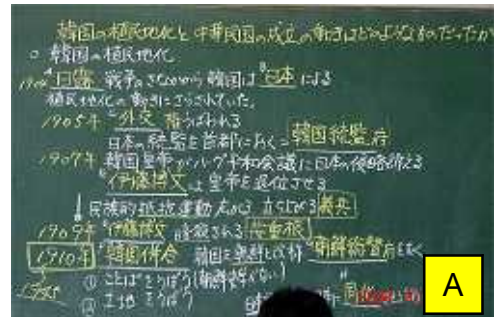 韓国の植民地化と中華民国の成立の動きはどのようなものだったか
○ 韓国の植民地化
日露 戦争のさなかから 韓国は 日本 による
植民地化の動きにさらされていた。
1905年 外交 権うばわれる
日本の統監を首都におく = 韓国統監府
1907年 韓国皇帝がハーグ平和会議に日本の侵略訴える
伊藤博文 は皇帝を退位させる
↓ 民族的抵抗運動 立ち上がる 義兵
1909年 伊藤博文 暗殺される 安重根
1910年 韓国併合 韓国を朝鮮と改称 朝鮮総督府をおく
① ことばをうばう(朝鮮
② 土地をうばう
A